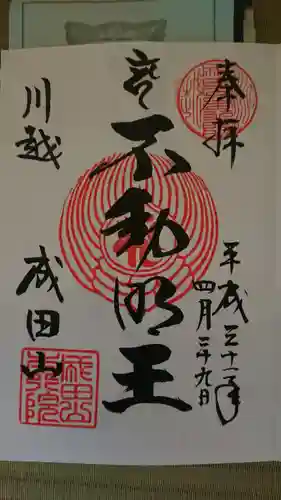 奉拝
平成三十一年
四月二十九日
不動明王
川越 成田山